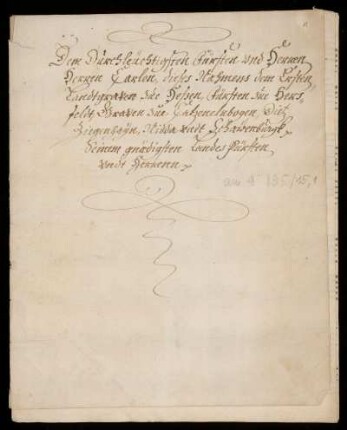 Dem Durchleuchtigsten Fürsten und Herren
Herren Carlen, dieses Nahmens dem Ersten,
Landtgraven zue Heßen, Fürsten zu Hers,
feldt, Graven zue Catzenelnbogen, Dietz
Ziegenhayn, Nidda undt Schaumburgk,
Seinem gnädigsten Landes Fürsten
undt Herrenn